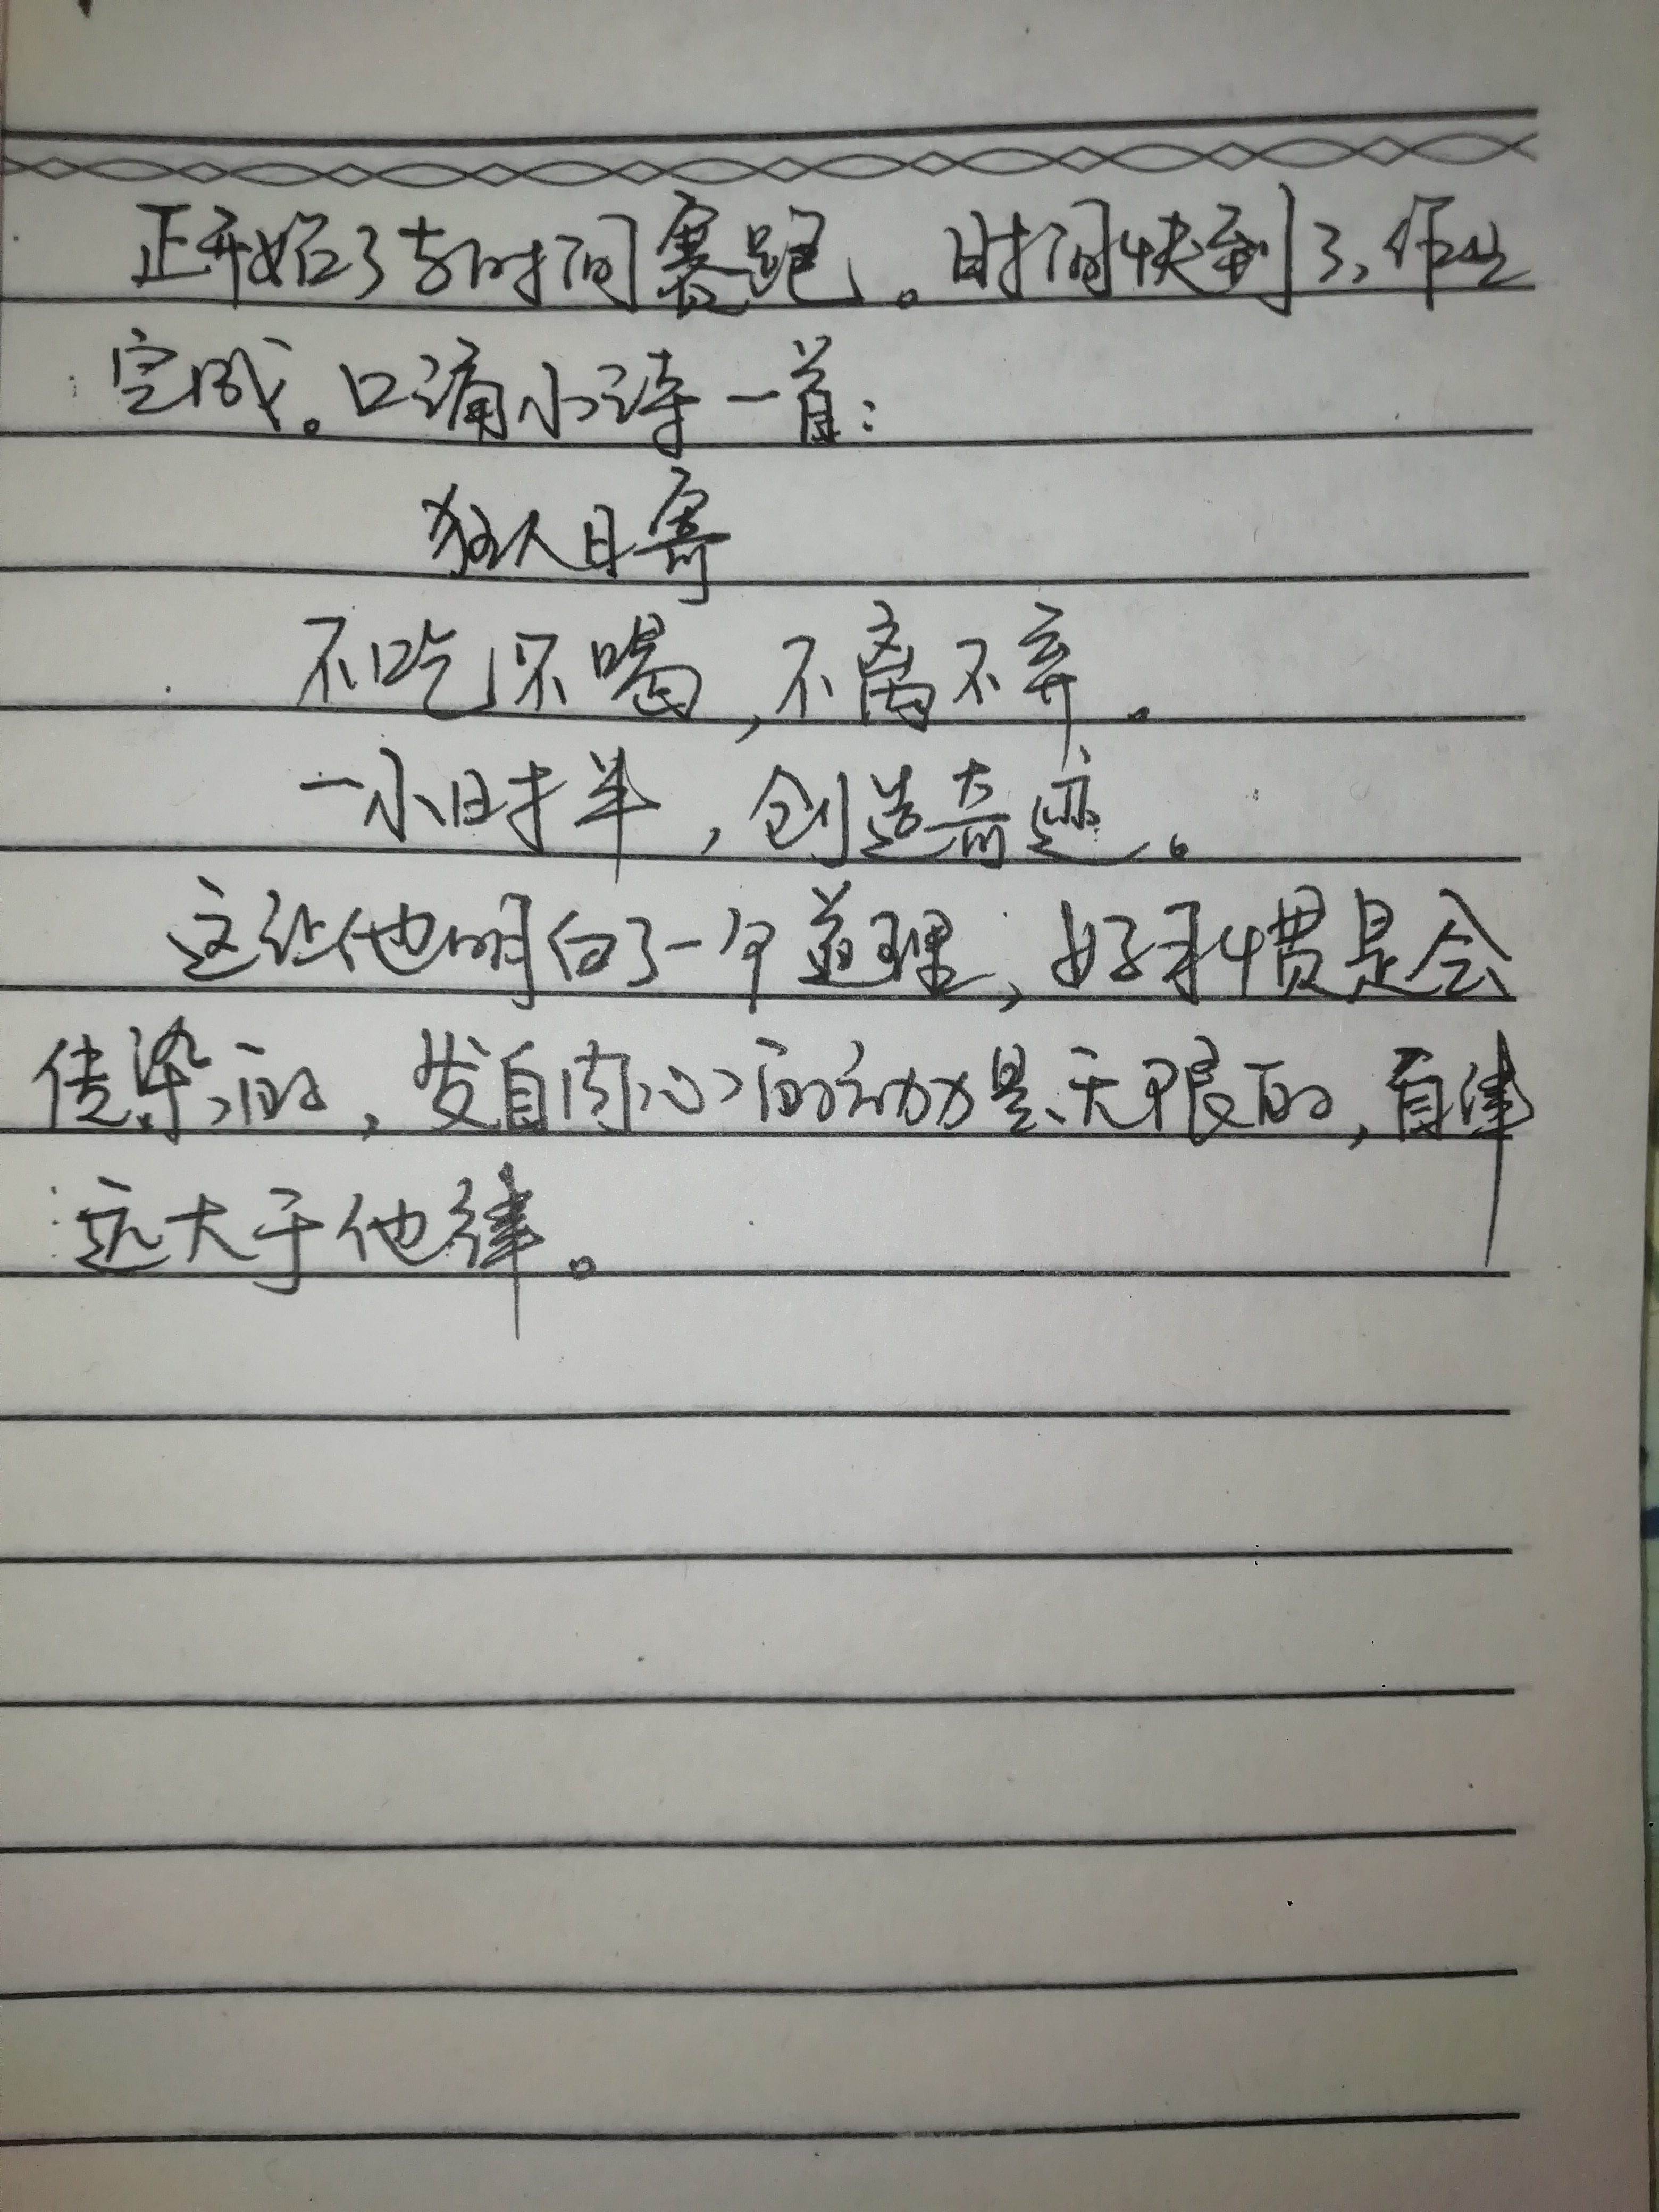 正开始了与时间赛跑。时间快到了，作业
完成。口诵小诗一首：
狂人日寄
不吃不喝，不离不弃。
一小时半，创造奇迹。
这让他明白了一个道理，好习惯是会
传染的，发自内心的动力是无限的，自律
远大于他律。